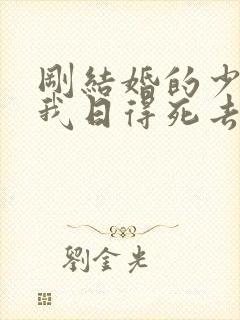 剛結婚的少
我日得死去
劉金光